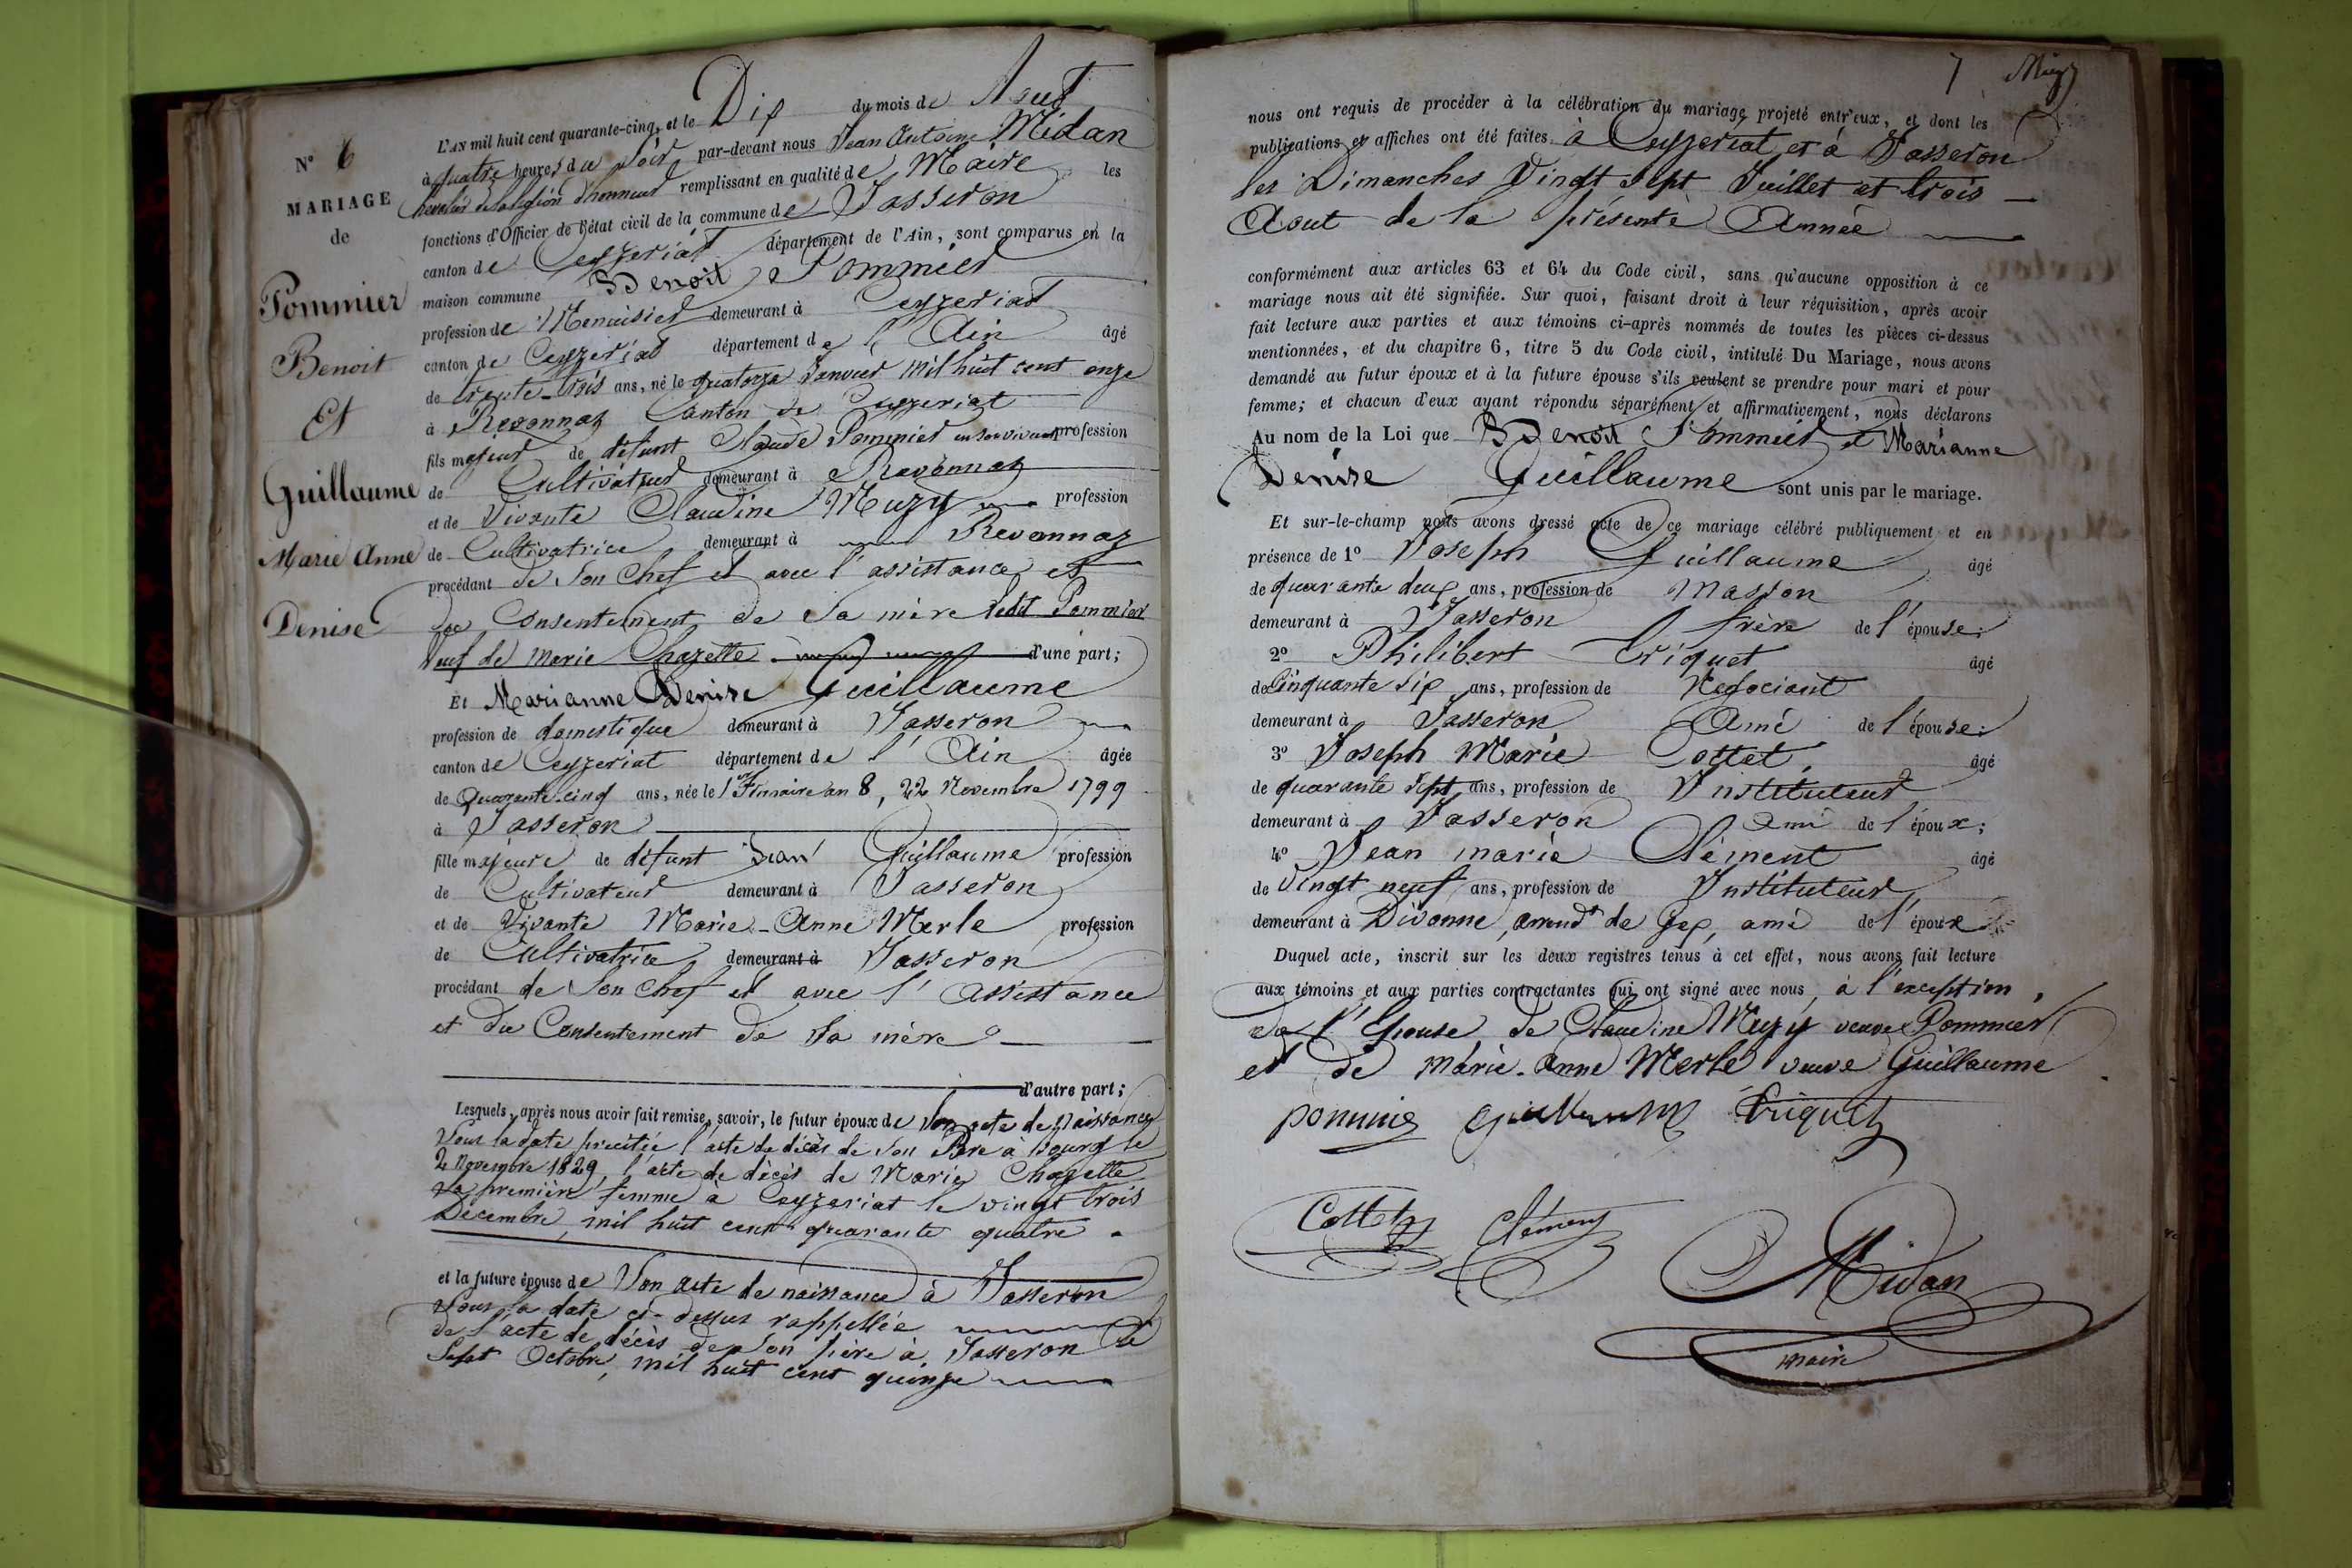 N° 6
MARIAGE
de
Pommier
Benoit
Et
Guillaume
Marie Anne
Denise
L'AN mil huit cent quarante-cinq, et le Dix du mois de Aout
à quatre heures du soir par-devant nous Jean Antoine Midan
chevalier de la légion d'honneur remplissant en qualité de Maire les
fonctions d'Officier de l'état civil de la commune de Jasseron
canton de Ceyzeriat département de l'Ain, sont comparus en la
maison commune Benoit Pommier
profession de Menuisier demeurant à Ceyzeriat
canton de Ceyzeriat département de l'Ain âgé
de trente-trois ans, né le quatorze Janvier mil huit cent onze
à Revonnaz Canton de Ceyzeriat
fils majeur de défunt Claude Pommier en son vivant profession
de Cultivateur demeurant à Revonnaz
et de Vivante Claudine Muzy profession
de Cultivatrice demeurant à Revonnaz
procédant de Son Chef et avec l'assistance et
du Consentement de Sa mère ledit Pommier
veuf de Marie Chazette d'une part;
Et Marianne Denise Guillaume
profession de domestique demeurant à Jasseron
canton de Ceyzeriat département de l'Ain âgée
de Quarante-cinq ans, née le 1er Frimaire an 8, 22 Novembre 1799
à Jasseron
fille majeure de défunt Jean Guillaume profession
de Cultivateur demeurant à Jasseron
et de Vivante Marie-Anne Merle profession
de Cultivatrice demeurant à Jasseron
procédant de Son Chef et avec l'Assistance
et du Consentement de Sa mère
d'autre part;
Lesquels, après nous avoir fait remise, savoir, le futur époux de Son acte de Naissance
Sous la date précitée l'acte de décès de Son Père à Bourg le
2 Novembre 1829, l'acte de décès de Marie Chazette
Sa première femme à Ceyzeriat le vingt trois
Décembre, mil huit cent quarante quatre.
et la future épouse de Son acte de naissance à Jasseron
Sous la date ci-dessus rappellée
de l'acte de décès de Son père à Jasseron le
Sept Octobre, mil huit cent quinze
7 Muzy
nous ont requis de procéder à la célébration du mariage projeté entr'eux, et dont les
publications et affiches ont été faites à Ceyzeriat et à Jasseron
les Dimanches Vingt Sept Juillet et trois
Aout de la présente Année
conformément aux articles 63 et 64 du Code civil, sans qu'aucune opposition à ce
mariage nous ait été signifiée. Sur quoi, faisant droit à leur réquisition, après avoir
fait lecture aux parties et aux témoins ci-après nommés de toutes les pièces ci-dessus
mentionnées, et du chapitre 6, titre 5 du Code civil, intitulé Du Mariage, nous avons
demandé au futur époux et à la future épouse s'ils veulent se prendre pour mari et pour
femme; et chacun d'eux ayant répondu séparément et affirmativement, nous déclarons
Au nom de la Loi que Benoit Pommier et Marianne
Denise Guillaume sont unis par le mariage.
Et sur-le-champ nous avons dressé acte de ce mariage célébré publiquement et en
présence de 1° Joseph Guillaume âgé
de quarante deux ans, profession de Masson
demeurant à Jasseron frère de l'épouse;
2° Philibert Triquet âgé
de Cinquante Six ans, profession de Négociant
demeurant à Jasseron Ami de l'épouse;
3° Joseph Marie Cottet, âgé
de quarante Sept ans, profession de Instituteur
demeurant à Jasseron ami de l'époux;
4° Jean marie Clément âgé
de Vingt neuf ans, profession de Instituteur
demeurant à Divonne, arrondt de Gex, ami de l'époux
Duquel acte, inscrit sur les deux registres tenus à cet effet, nous avons fait lecture
aux témoins et aux parties contractantes qui ont signé avec nous, à l'exception,
de l'Epouse, de Claudine Muzy veuve Pommier
et de Marie-Anne Merle veuve Guillaume
pommie Guillaume Triquet
Cottet Clément Midan
maire